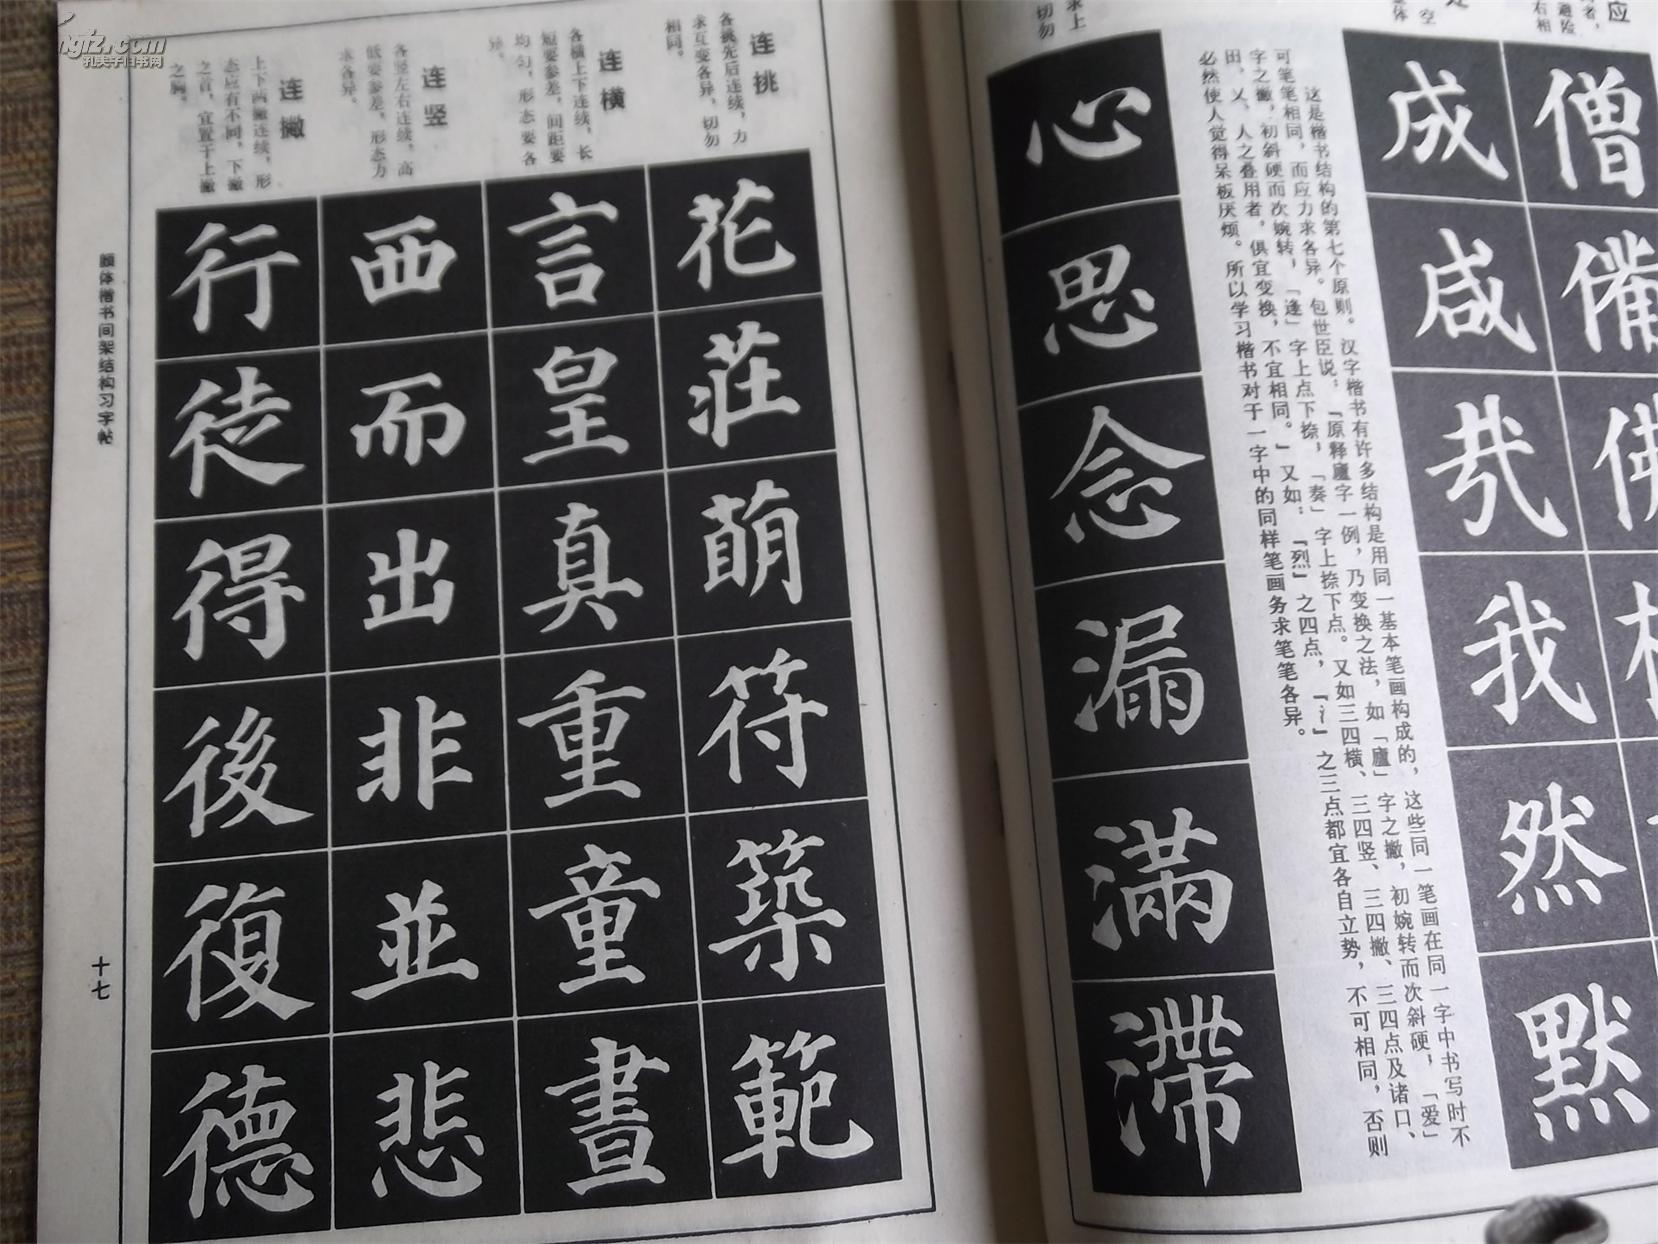 孔夫子旧书网
僧
備
佛
成
咸
哉
我
然
默
这是楷书结构的第七个原则。汉字楷书有许多结构是用同一基本笔画构成的，这些同一笔画在同一字中书写时不
可笔笔相同，而应力求各异。包世臣说：「原释廬字一例，乃变换之法，如「廬」字之撇，初婉转而次斜硬；「爱」
字之撇，初斜硬而次婉转，「逢」字上点下捺，「奏」字上捺下点。又如三四横、三四竖、三四撇、三四点及诸口、
田、乂、人之叠用者，俱宜变换，不宜相同。」又如：「烈」之四点，「氵」之三点都宜各自立势，不可相同，否则
必然使人觉得呆板厌烦。所以学习楷书对于一字中的同样笔画务求笔笔各异。
心
思
念
漏
滿
滯
连挑
各挑先后连续，力
求互变各异，切勿
相同。
花
莊
萌
符
築
範
连横
各横上下连续，长
短要参差，间距要
均匀，形态要各
异。
言
皇
真
重
童
晝
连竖
各竖左右连续，高
低要参差，形态力
求各异。
西
而
出
非
並
悲
连撇
上下两撇连续，形
态应有不同，下撇
之首，宜置于上撇
之胸。
行
徒
得
後
復
德
颜体楷书间架结构习字帖
十七